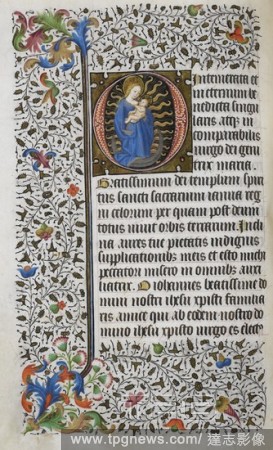 Intemerata et
in eternum be
nedicta singu
laris atq; in
comparabilis
uirgo dei geni
trix maria.
Gratissimum dei templum spiri
tus sancti sacrarium ianua reg
ni celorum per quam post deum
totus uiuit orbis terrarum. Incli
na aures tue pietatis indignis
supplicationibus meis et esto michi
peccatori misero in omnibus aux
iliatrix. O iohannes beatissime do
mini nostri ihesu xpisti familia
ris amice qui ab eodem nostro do
mino ihesu xpisto uirgo es elect
www.tpgnews.com / 達志影像